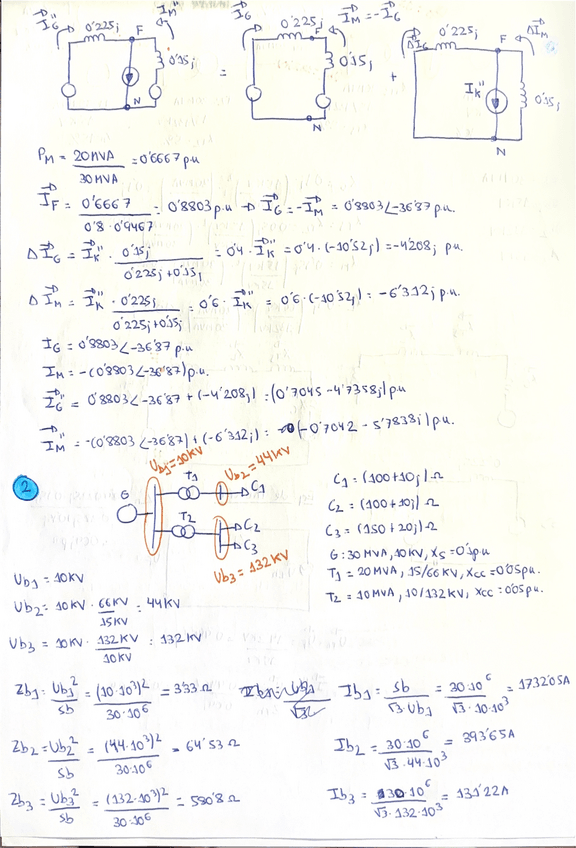 I_G'' 0'225j F I_M'' 0'15j N = I_G 0'225j I_M = -I_G F 0'15j N + ΔI_G 0'225j F ΔI_M I_K'' 0'15j N
P_M = 20MVA / 30MVA = 0'6667 p.u
I_F = 0'6667 / 0'8·0'9467 = 0'8803 p.u → I_G = -I_M = 0'8803∠-36'87 p.u.
ΔI_G = I_K'' · 0'15j / 0'225j+0'15j = 0'4 · I_K'' = 0'4·(-10'52j) = -4'208j p.u.
ΔI_M = I_K'' · 0'225j / 0'225j+0'15j = 0'6 · I_K'' = 0'6·(-10'52j) = -6'312j p.u.
I_G = 0'8803∠-36'87 p.u
I_M = -(0'8803∠-36'87) p.u.
I_G'' = 0'8803∠-36'87 + (-4'208j) = (0'7045 -4'7358j) p.u
I_M'' = -(0'8803∠-36'87) + (-6'312j) = (-0'7042 - 5'7838j) p.u
2
Ub1 = 10KV
Ub2 = 44KV
G T1 C1
T2 C2
C3
Ub3 = 132KV
C1 = (100+10j) Ω
C2 = (100+10j) Ω
C3 = (150+20j) Ω
G: 30 MVA, 10KV, Xs = 0'1pu
T1 = 20MVA, 15/66 KV, Xcc = 0'05 p.u.
T2 = 10MVA, 10/132 KV, Xcc = 0'05 pu.
Ub1 = 10KV
Ub2 = 10KV · 66KV / 15KV = 44KV
Ub3 = 10KV · 132KV / 10KV = 132KV
Zb1 = Ub1² / Sb = (10·10³)² / 30·10⁶ = 3'33 Ω
Ib1 = Sb / √3·Ub1 = 30·10⁶ / √3·10·10³ = 1732'05A
Zb2 = Ub2² / Sb = (44·10³)² / 30·10⁶ = 64'53 Ω
Ib2 = 30·10⁶ / √3·44·10³ = 393'65A
Zb3 = Ub3² / Sb = (132·10³)² / 30·10⁶ = 580'8 Ω
Ib3 = 30·10⁶ / √3·132·10³ = 131'22A